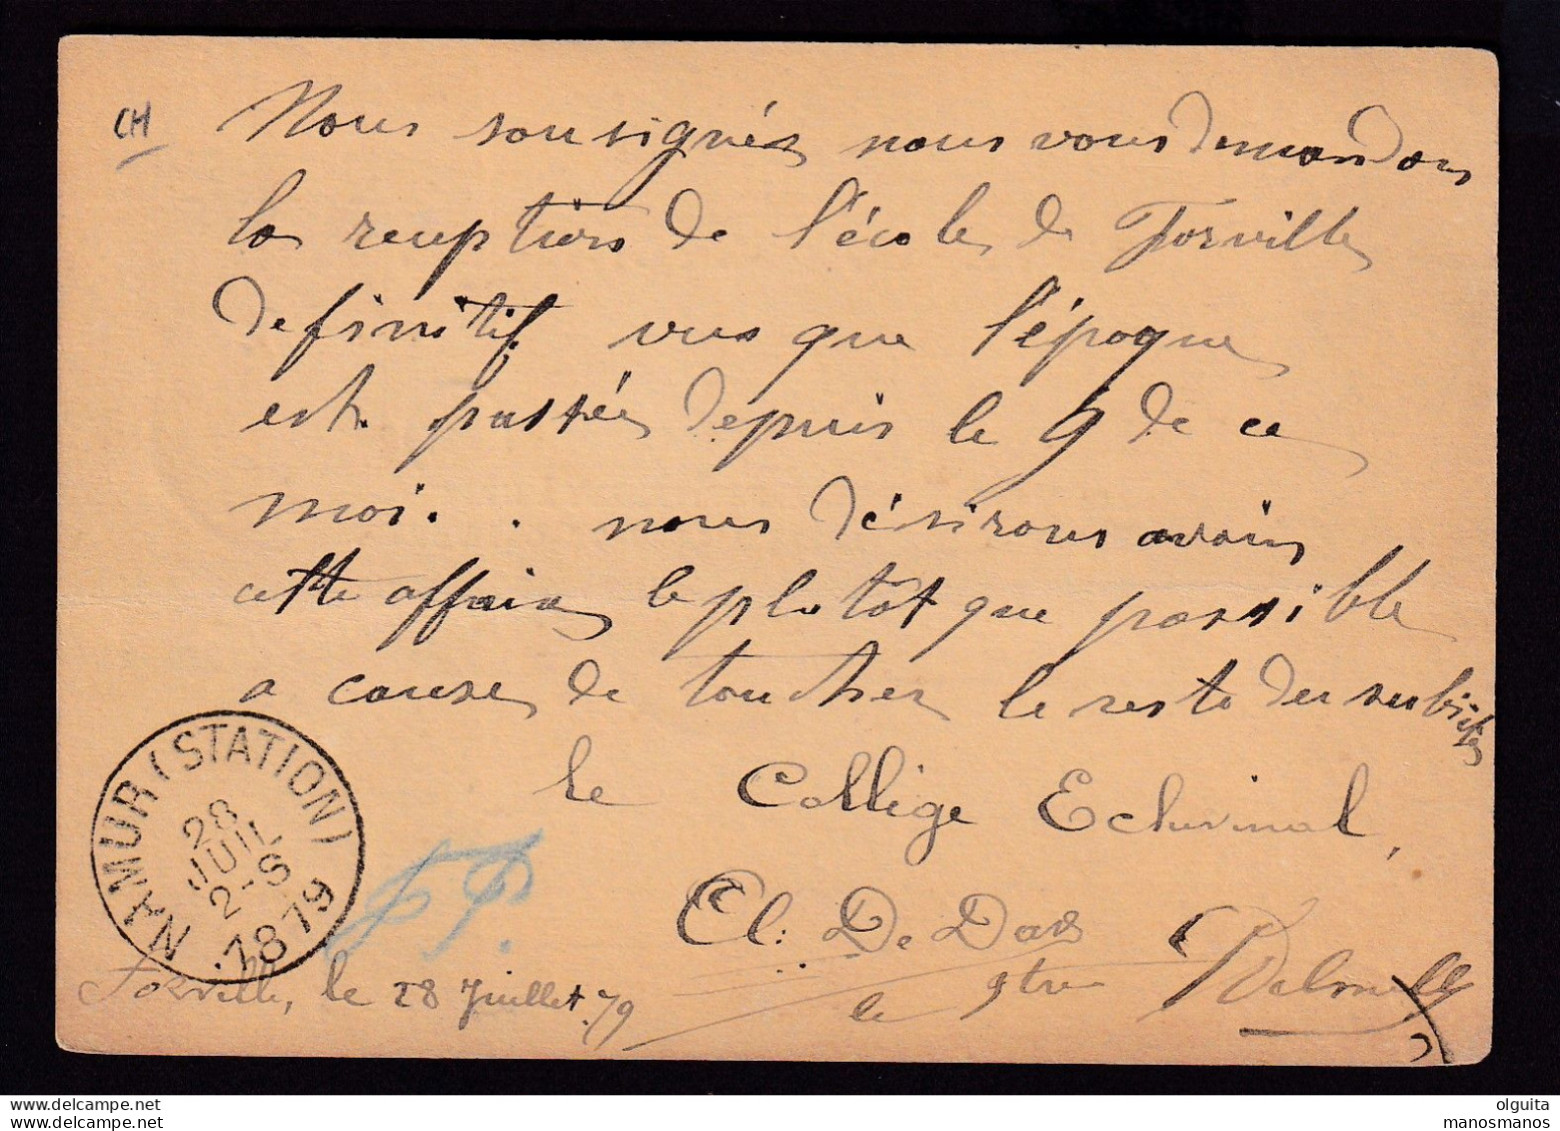 CH
Nous sousignés nous vous demandons
la reuption de l'école de Forville
definitif vue que l'époque
est passée depuis le 9 de ce
moi. . nous désirons avoir
cette affaire le plutôt que possible
a cause de toucher le reste du subside
le Collige Echevinal,
El: De Dav
le gtre Delmelle
NAMUR (STATION)
28
JUIL
2-S
1879
Forville, le 28 Juillet 79
olguita
manosmanos